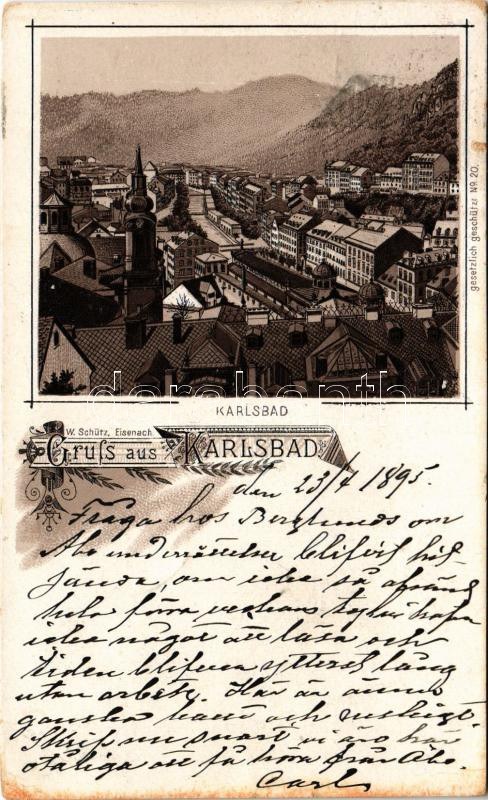 gesetzlich geschützt No. 20.
KARLSBAD
W. Schütz, Eisenach
Gruss aus KARLSBAD
den 23/4 1895.
Fråga hos Berglunds om
Åbo underrättelser blifvit hit
sända, om icke så
hela förra veckans hafva
icke något att läsa och
tiden blifver ytterst lång
utan arbete. Här är ännu
ganska och ruskigt.
Skrif nu snart vi äro här
otåliga att få höra från Åbo.
Carl